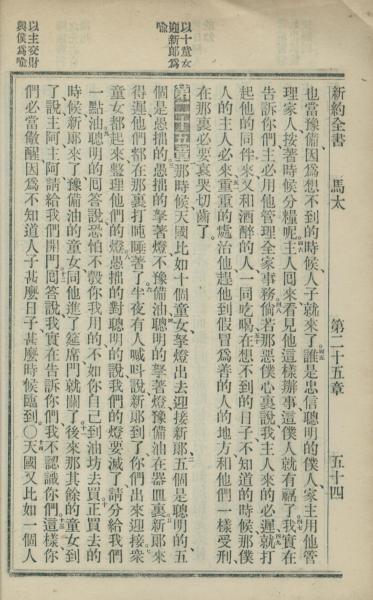 新約全書 馬太 第二十五章 五十四
也當豫備因爲想不到的時候人子就來了誰是忠信聰明的僕人家主用他管
理家人按著時候分糧呢主人回來看見他這樣辦事這僕人就有福了我實在
告訴你們主必用他管理全家事務倘若那惡僕心裏說我主人來的必遲就打
起他的同伴來又和酒醉的人一同吃喝在想不到的日子不知道的時候那僕
人的主人必來重重的處治他趕他到假冒爲善的人的地方和他們一樣受刑
在那裏必要哀哭切齒了
第二十五章那時候天國比如十個童女拏燈出去迎接新郎五個是聰明的五
個是愚拙的愚拙的拏著燈不豫備油聰明的拏著燈豫備油在器皿裏新郎來
得遲他們都在那裏打盹睡著了半夜有人喊呌說新郎到了你們出來迎接衆
童女都起來整理他們的燈愚拙的對聰明的說我們的燈要滅了請分給我們
一點油聰明的回答說恐怕不彀你我用的不如你自己到油坊去買正買去的
時候新郎來了豫備油的童女同他進了筵席門就關了後來那其餘的童女到
了說主阿主阿請給我們開門回答說我實在告訴你們我不認識你們這樣你
們必當儆醒因爲不知道人子甚麽日子甚麽時候臨到〇天國又比如一個人
以十童女
迎新郎爲
喩
以主交財
與僕爲喩